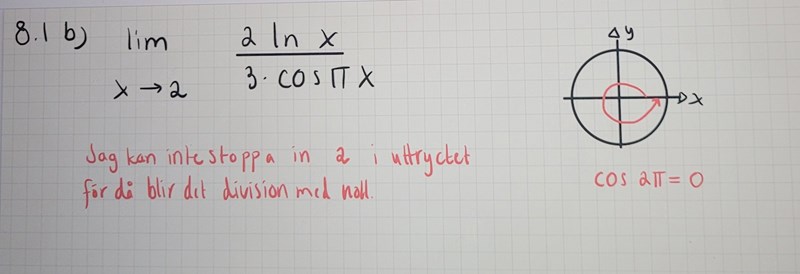 8.1 b) lim 2 ln x
x → 2 3· cos π x
Jag kan inte stoppa in 2 i uttrycket
för då blir det division med noll.
y
x
cos 2π = 0